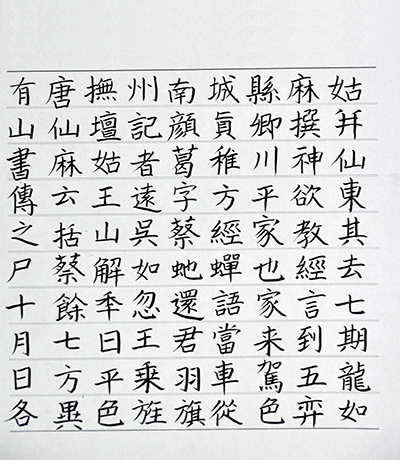 有唐撫州南城縣麻姑
山仙壇記顔真卿撰幷
書麻姑者葛稚川神仙
傳云王遠字方平欲東
之括山吳蔡經家教其
尸蔡解如虵蟬也經去
十餘秊忽還語家言七
月七日王君當来到期
日方平乗羽車駕五龍
各異色旌旗從色弈如